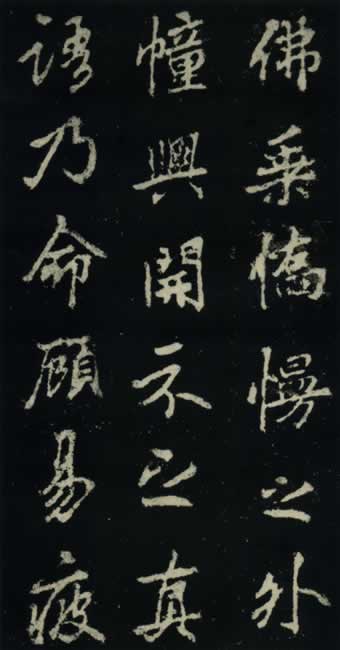 佛乘憍慢之外
幢興開示之真
語乃命顧易疲